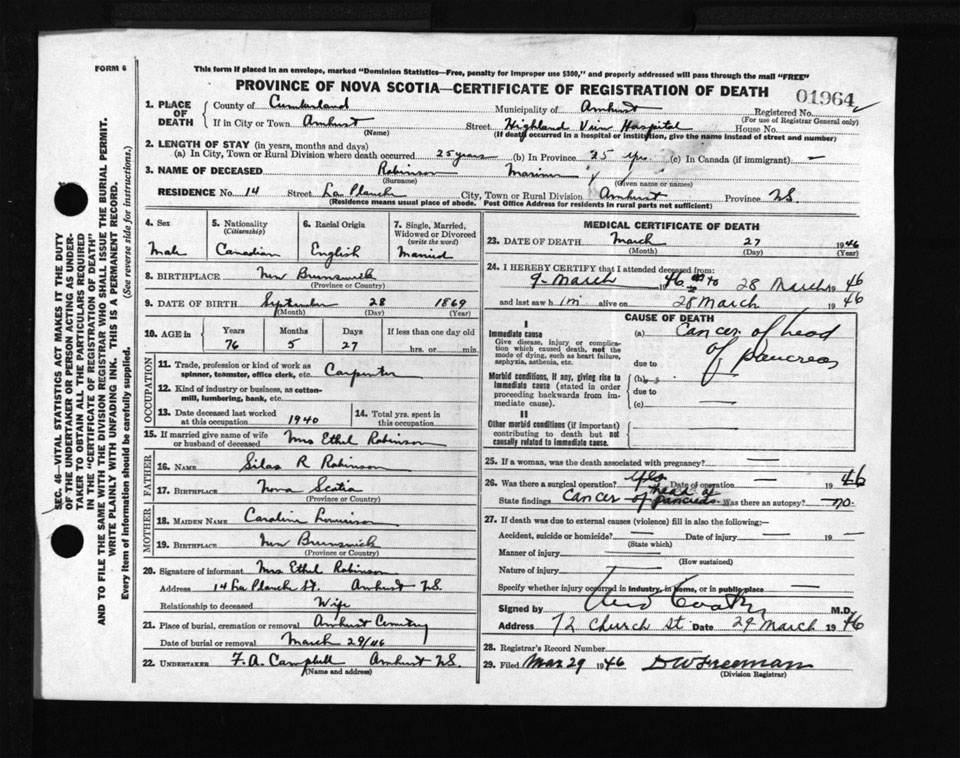 FORM 6
This form if placed in an envelope, marked "Dominion Statistics—Free, penalty for improper use $300," and properly addressed will pass through the mail "FREE"
PROVINCE OF NOVA SCOTIA—CERTIFICATE OF REGISTRATION OF DEATH
01964
1. PLACE OF DEATH County of Cumberland Municipality of Amherst Registered No.
(For use of Registrar General only)
If in City or Town Amherst Street Highland View Hospital House No.
(Name) (If death occurred in a hospital or institution, give the name instead of street and number)
2. LENGTH OF STAY (in years, months and days)
(a) In City, Town or Rural Division where death occurred 25 years (b) In Province 25 yrs. (c) In Canada (if immigrant) —
3. NAME OF DECEASED Robinson
(Surname) (Given name or names)
RESIDENCE No. 14 Street La Planch City, Town or Rural Division Amherst Province N.S.
(Residence means usual place of abode. Post Office Address for residents in rural parts not sufficient)
4. Sex
Male
5. Nationality
(Citizenship)
Canadian
6. Racial Origin
English
7. Single, Married,
Widowed or Divorced
(write the word)
Married
8. BIRTHPLACE New Brunswick
(Province or Country)
9. DATE OF BIRTH September 28 1869
(Month) (Day) (Year)
10. AGE in Years Months Days If less than one day old
76 5 27 hrs. or min.
OCCUPATION
11. Trade, profession or kind of work as
spinner, teamster, office clerk, etc. Carpenter
12. Kind of industry or business, as cotton-
mill, lumbering, bank, etc.
13. Date deceased last worked
at this occupation 1940
14. Total yrs. spent in
this occupation
15. If married give name of wife
or husband of deceased Mrs Ethel Robinson
FATHER
16. NAME Silas R Robinson
17. BIRTHPLACE Nova Scotia
(Province or Country)
MOTHER
18. MAIDEN NAME Caroline
19. BIRTHPLACE New Brunswick
(Province or Country)
20. Signature of informant Mrs Ethel Robinson
Address 14 La Planch St. Amherst N.S.
Relationship to deceased Wife
21. Place of burial, cremation or removal Amherst Cemetery
Date of burial or removal March 29/46
22. UNDERTAKER F. A. Campbell Amherst N.S.
(Name and address)
MEDICAL CERTIFICATE OF DEATH
23. DATE OF DEATH March 27 1946
(Month) (Day) (Year)
24. I HEREBY CERTIFY that I attended deceased from:
9 March 1946 to 28 March 1946
and last saw him alive on 28 March 1946
CAUSE OF DEATH
I
Immediate cause
Give disease, injury or complica-
tion which caused death, not the
mode of dying, such as heart failure,
asphyxia, asthenia, etc.
(a) Cancer of head
of pancreas
due to
Morbid conditions, if any, giving rise to
immediate cause (stated in order
proceeding backwards from im-
mediate cause).
(b)
due to
(c)
II
Other morbid conditions (if important)
contributing to death but not
causally related to immediate cause.
25. If a woman, was the death associated with pregnancy? —
26. Was there a surgical operation? Yes Date of operation — 1946
State findings Cancer of head of pancreas Was there an autopsy? no
27. If death was due to external causes (violence) fill in also the following:—
Accident, suicide or homicide? — Date of injury — 19 —
(State which)
Manner of injury
(How sustained)
Nature of injury
Specify whether injury occurred in industry, in home, or in public place —
Signed by M.D.
Address 72 Church St Date 29 March 1946
28. Registrar's Record Number
29. Filed Mar 29 1946 D W Freeman
(Division Registrar)
SEC. 46—VITAL STATISTICS ACT MAKES IT THE DUTY
OF THE UNDERTAKER OR PERSON ACTING AS UNDER-
TAKER TO OBTAIN ALL THE PARTICULARS REQUIRED
IN THE "CERTIFICATE OF REGISTRATION OF DEATH"
AND TO FILE THE SAME WITH THE DIVISION REGISTRAR WHO SHALL ISSUE THE BURIAL PERMIT.
WRITE PLAINLY WITH UNFADING INK. THIS IS A PERMANENT RECORD.
Every item of information should be carefully supplied. (See reverse side for instructions.)